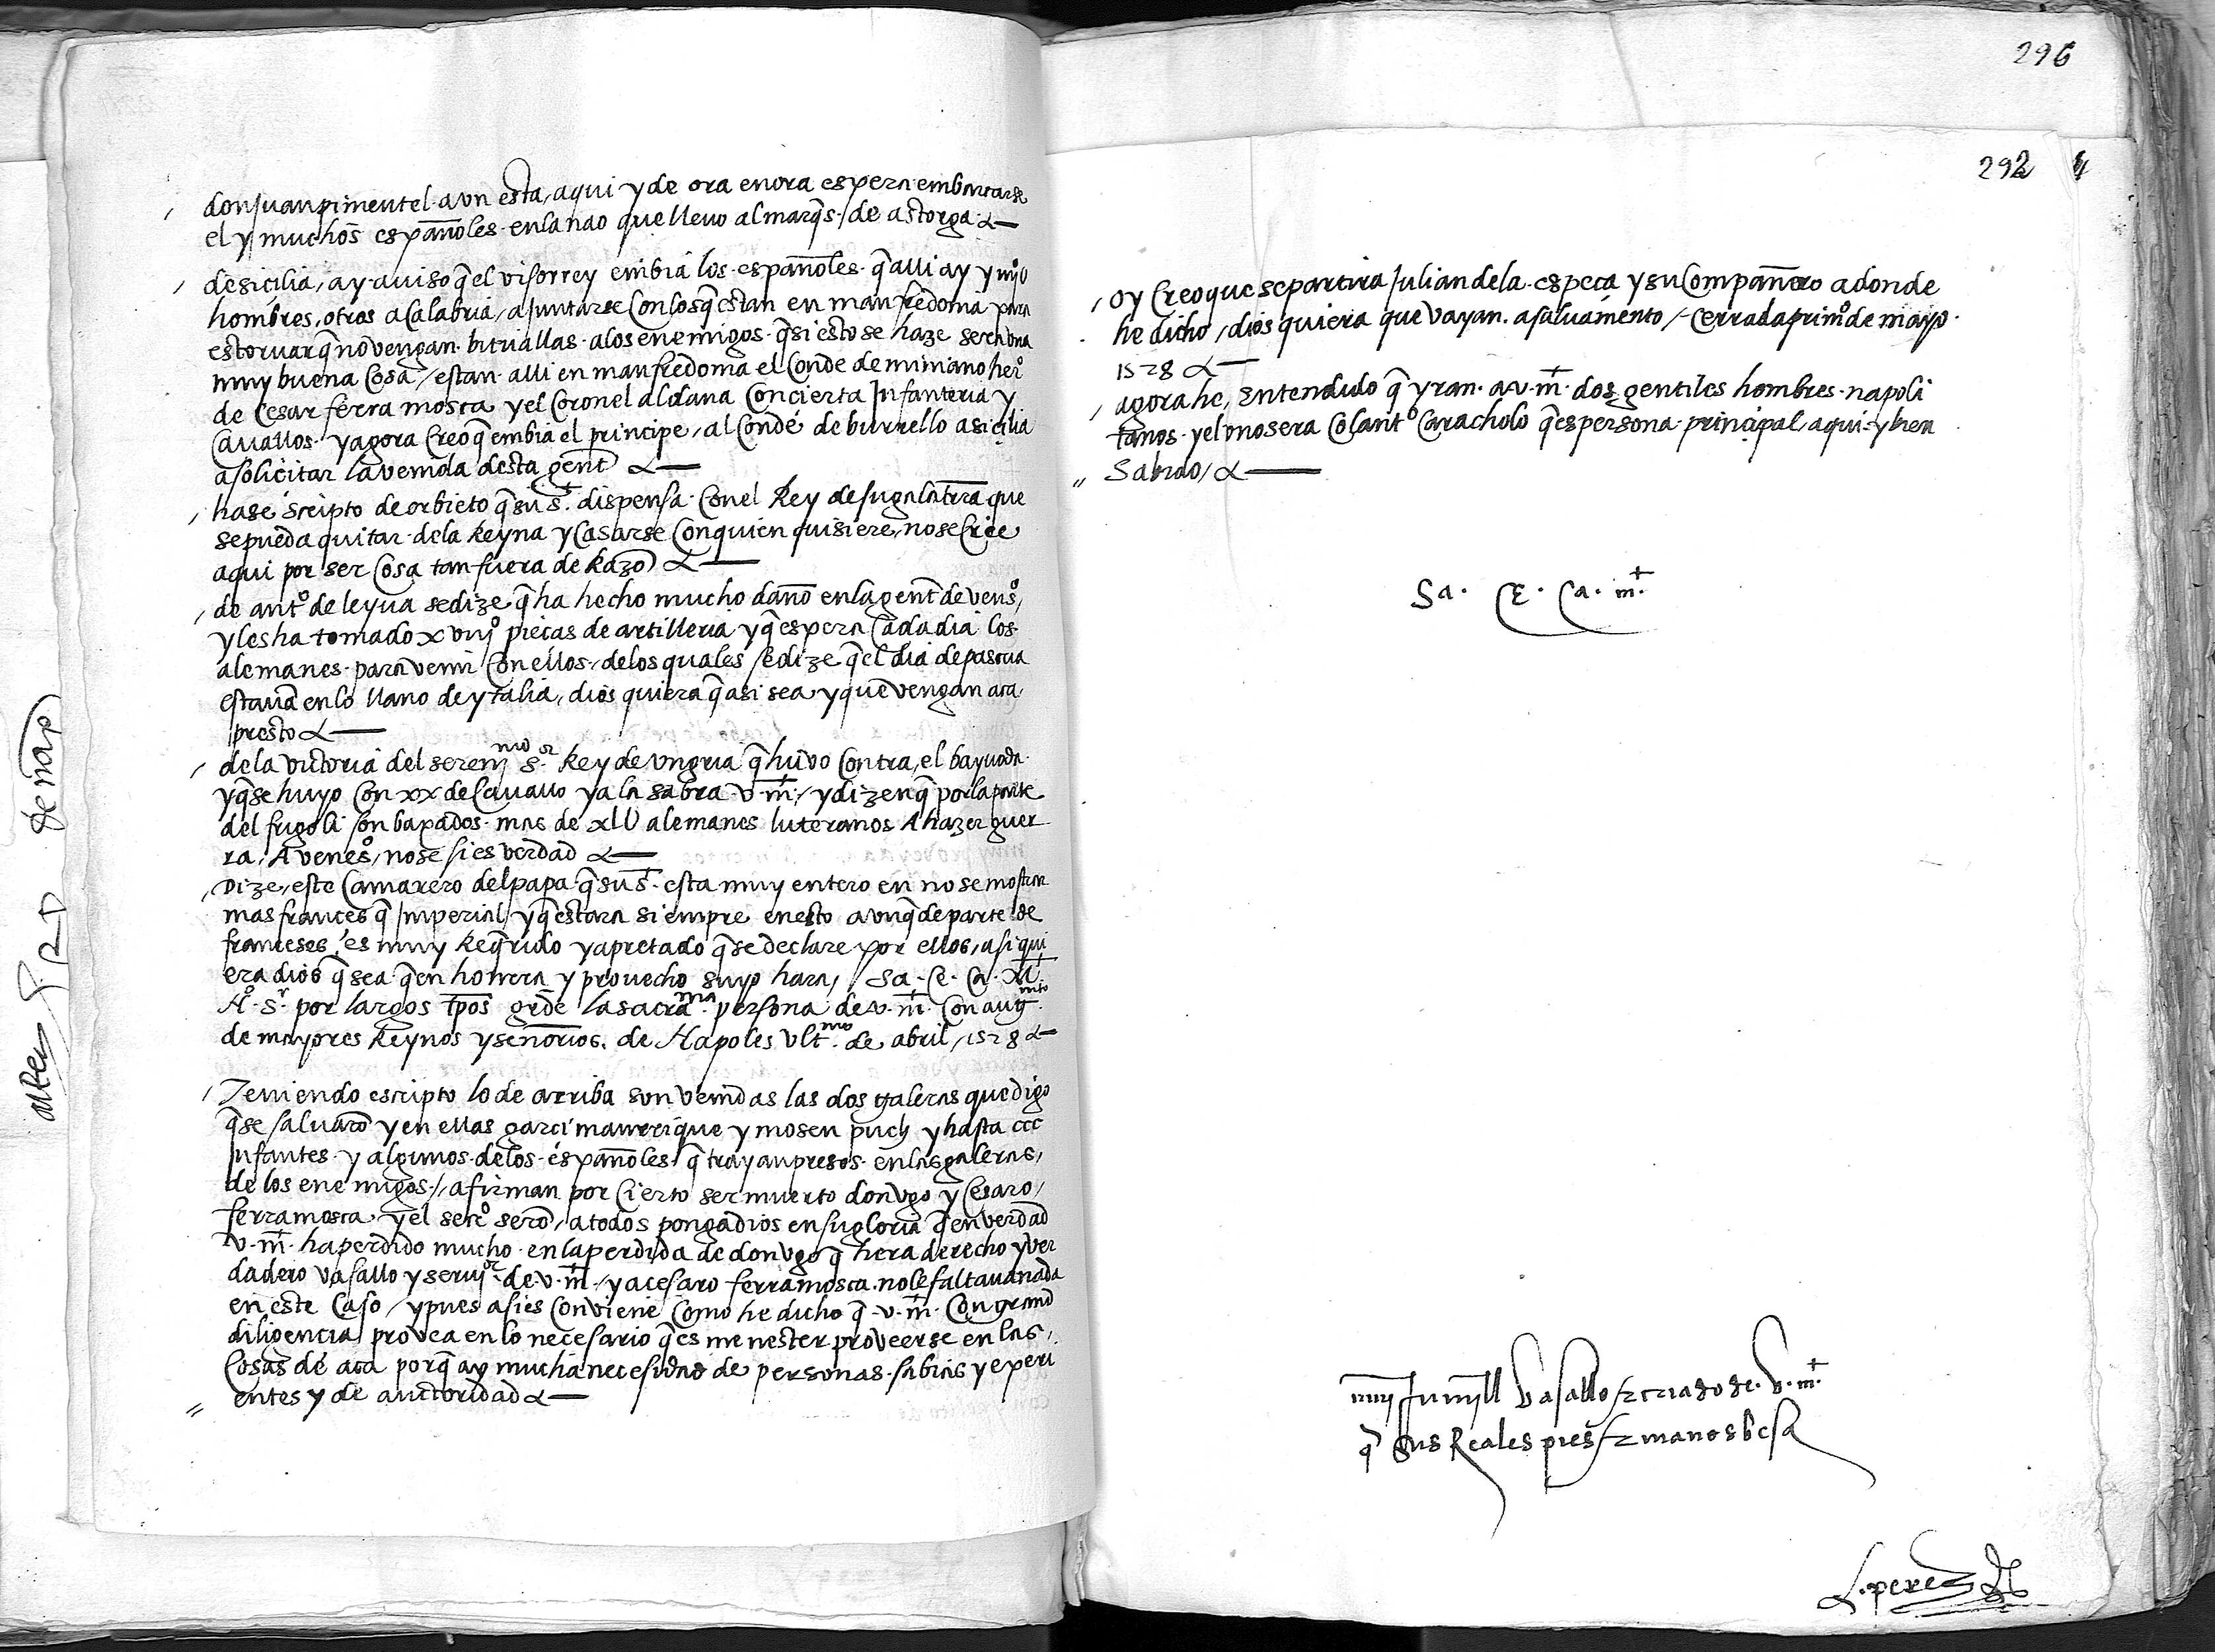 don Juan pimentel avn esta aqui y de ora en ora espera embarcarse
el y muchos españoles en la nao que lleuo al marq̃s de astorga
de sicilia ay auiso q̃ el visorrey embia los españoles q̃ alli ay y
hombres otros a calabria a Juntarse con los q̃ estan en manfredonia para
estoruar q̃ no vengan bituallas a los enemigos q̃ si esto se haze seria vna
muy buena cosa / estan alli en manfredonia el Conde de miniano her.º
de Cesar ferra mosca y el Coronel aldana Con cierta Infanteria y
Cauallos y agora Creo q̃ embia el principe al Conde de burrello a sicilia
a solicitar la venida desta gent
hase scripto de orbieto q̃ su S.t dispensa con el Rey de Ingalaterra que
se pueda quitar de la Reyna y Casarse Con quien quisiere no se Cree
aqui por ser Cosa tan fuera de Razõ
de ant.º de leyua se dize q̃ ha hecho mucho daño en la gent de venº
y les ha tomado xviijº pieças de artilleria y q̃ espera Cada dia los
alemanes para venir Con ellos de los quales se dize q̃ el dia de pascua
estauã en lo llano de ytalia, dios quiera q̃ asi sea y que vengan aca
presto
de la victoria del serenmo S.or Rey de vngria q̃ huvo contra el bayuoda
y q̃ se huyo Con xx de Cauallo ya la sabra v. m.t / y dizen q̃ por la parte
del frigoli son baxados mas de xlU alemanes luteranos A hazer guer
ra A venesº, no se si es verdad
Dize este Camarero del papa q̃ su S.t esta muy entero en no se mostrar
mas frances q̃ Imperial y q̃ estara siempre en esto avnq̃ de parte de
franceses es muy Req̃rido y apretado q̃ se declare por ellos, asi qui
era dios q̃ sea q̃ en honrra y prouecho suyo hara / Sa. Ce. Ca. M.t
Nº. S.r por largos tpõs grde la sacrama persona de v. m.t Con augmto
de mayores Reynos y señorios. de Napoles vltmo de abril 1528
Teniendo escripto lo de arriba son venidas las dos galeras que digo
q̃ se saluarõ y en ellas garci manrrique y mosen puch y hasta ccc
Infantes y algunos de los españoles q̃ trayan presos en las galeras
de los enemigos / afirman por Cierto ser muerto don vgo y Cesaro
ferramosca y el secrº serõ, a todos ponga dios en su gloria q̃ en verdad
v. m.t ha perdido mucho en la perdida de don vgo q̃ hera derecho y ver
dadero vasallo y seruj.or de v. m.t / y a cesaro ferramosca no le faltaua nada
en este Caso / y pues asi es Conviene Como he dicho q̃ v. m.t Con grand
diligencia provea en lo necesario q̃ es menester proveerse en las
Cosas de aca porq̃ ay mucha necesidad de personas sabias y experi
entes y de auctoridad
296
292 4
Oy Creo que se partira Julian de la especa y su Compañero a donde
he dicho / dios quiera que vayan a saluamento / Cerrada a primº de mayo
1528
agora he entendido q̃ yran a v. m.t dos gentiles hombres napoli
tanos y el vno sera Colantº Caracholo q̃ es persona principal aqui y bien
Sabido
Sa. Ce. Ca. m.t
muy humyll Vasallo & criado de. V. m.t
q̃ sus Reales pies & manos besa
L. perez